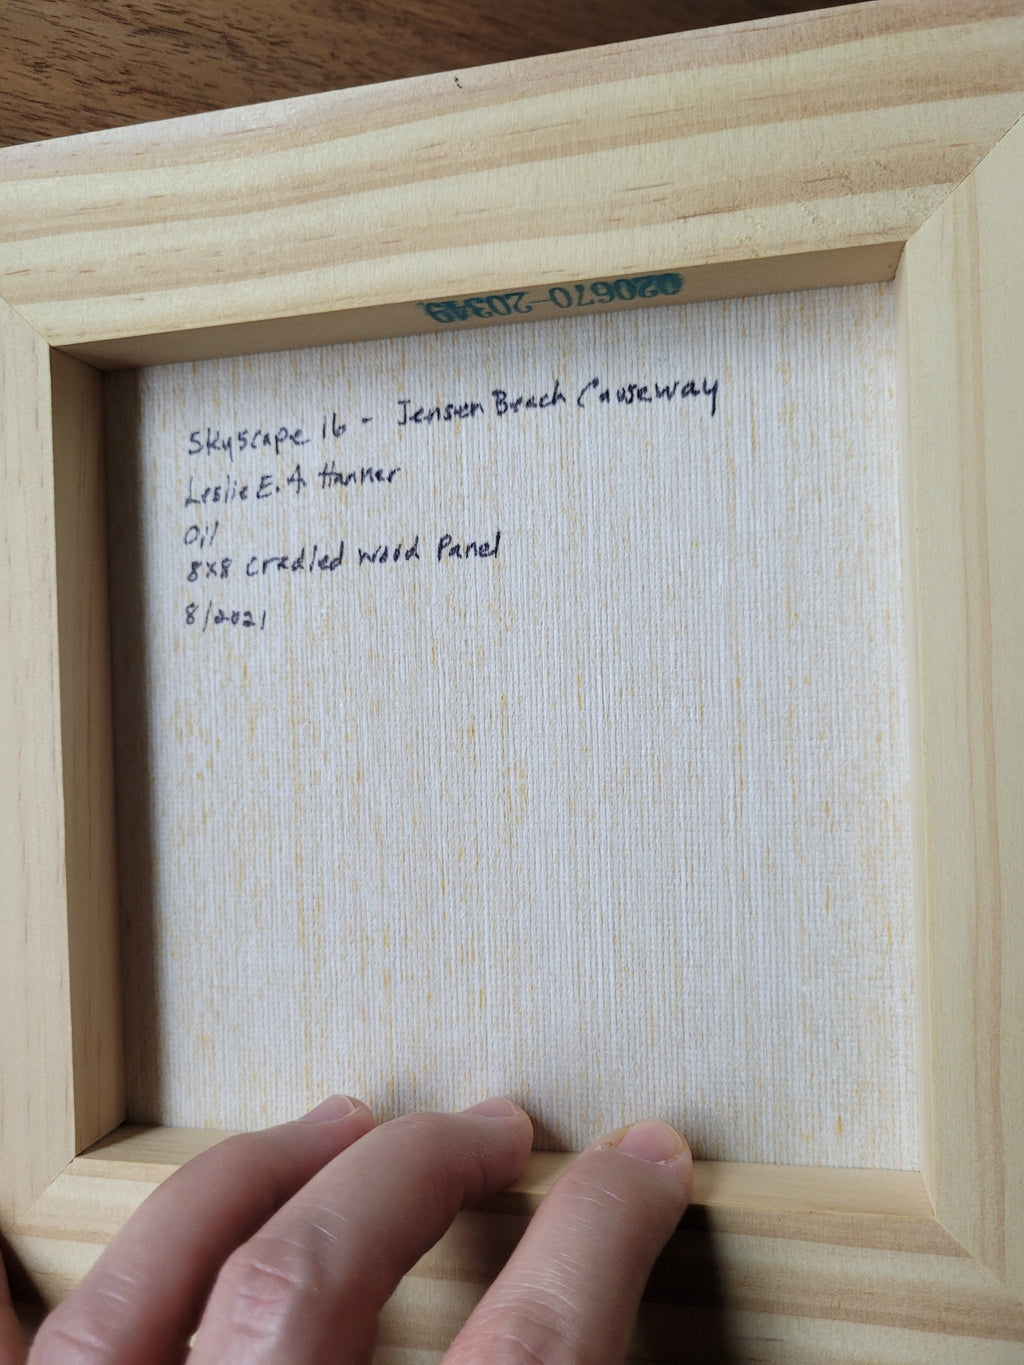 020670-20349
Skyscape 16 - Jensen Beach Causeway
Leslie E. A. Hanner
Oil
8x8 cradled wood Panel
8/2021